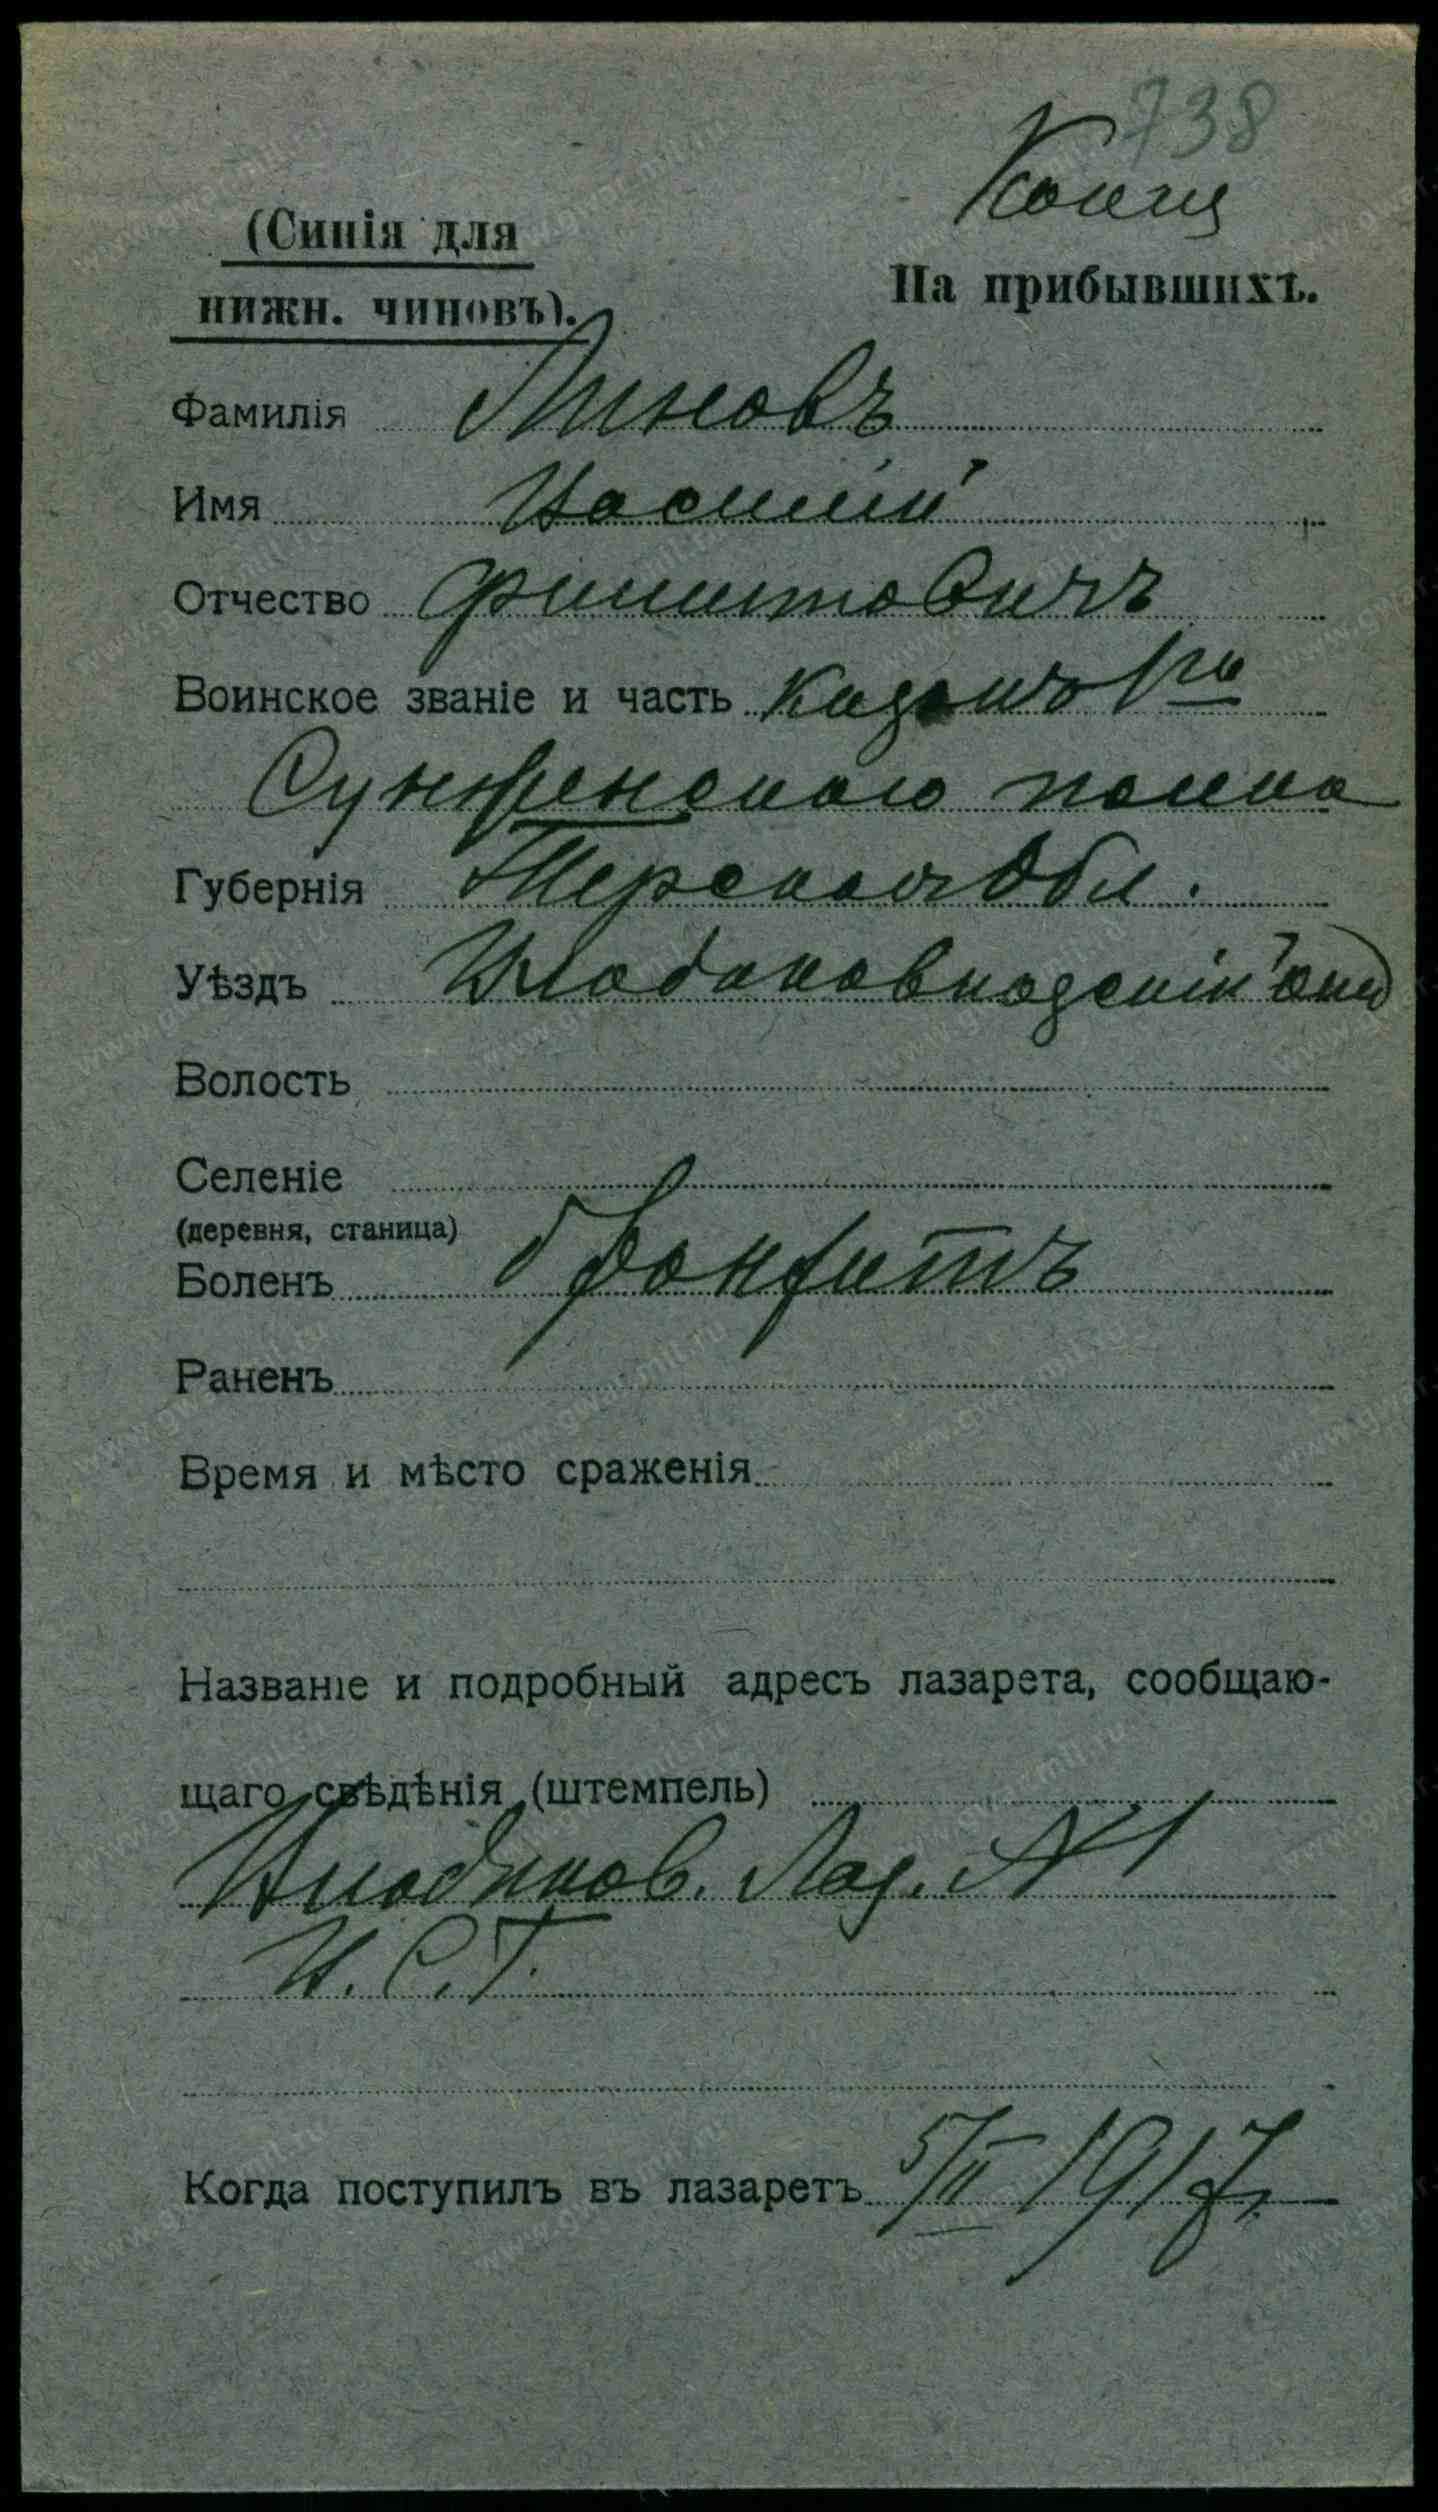 738
(Синія для
нижн. чиновъ).
На прибывшихъ.
Фамилія Линовъ
Имя Василій
Отчество Филиповичъ
Воинское званіе и часть Казакъ 1го
Сунженскаго полка
Губернія Терская Обл.
Уѣздъ Владикавказскій
Волость
Селеніе
(деревня, станица)
Боленъ бронхитъ
Раненъ
Время и мѣсто сраженія
Названіе и подробный адресъ лазарета, сообщаю-
щаго свѣдѣнія (штемпель)
Владикав. Лаз. №1
В.С.Г.
Когда поступилъ въ лазаретъ 5/II 1917